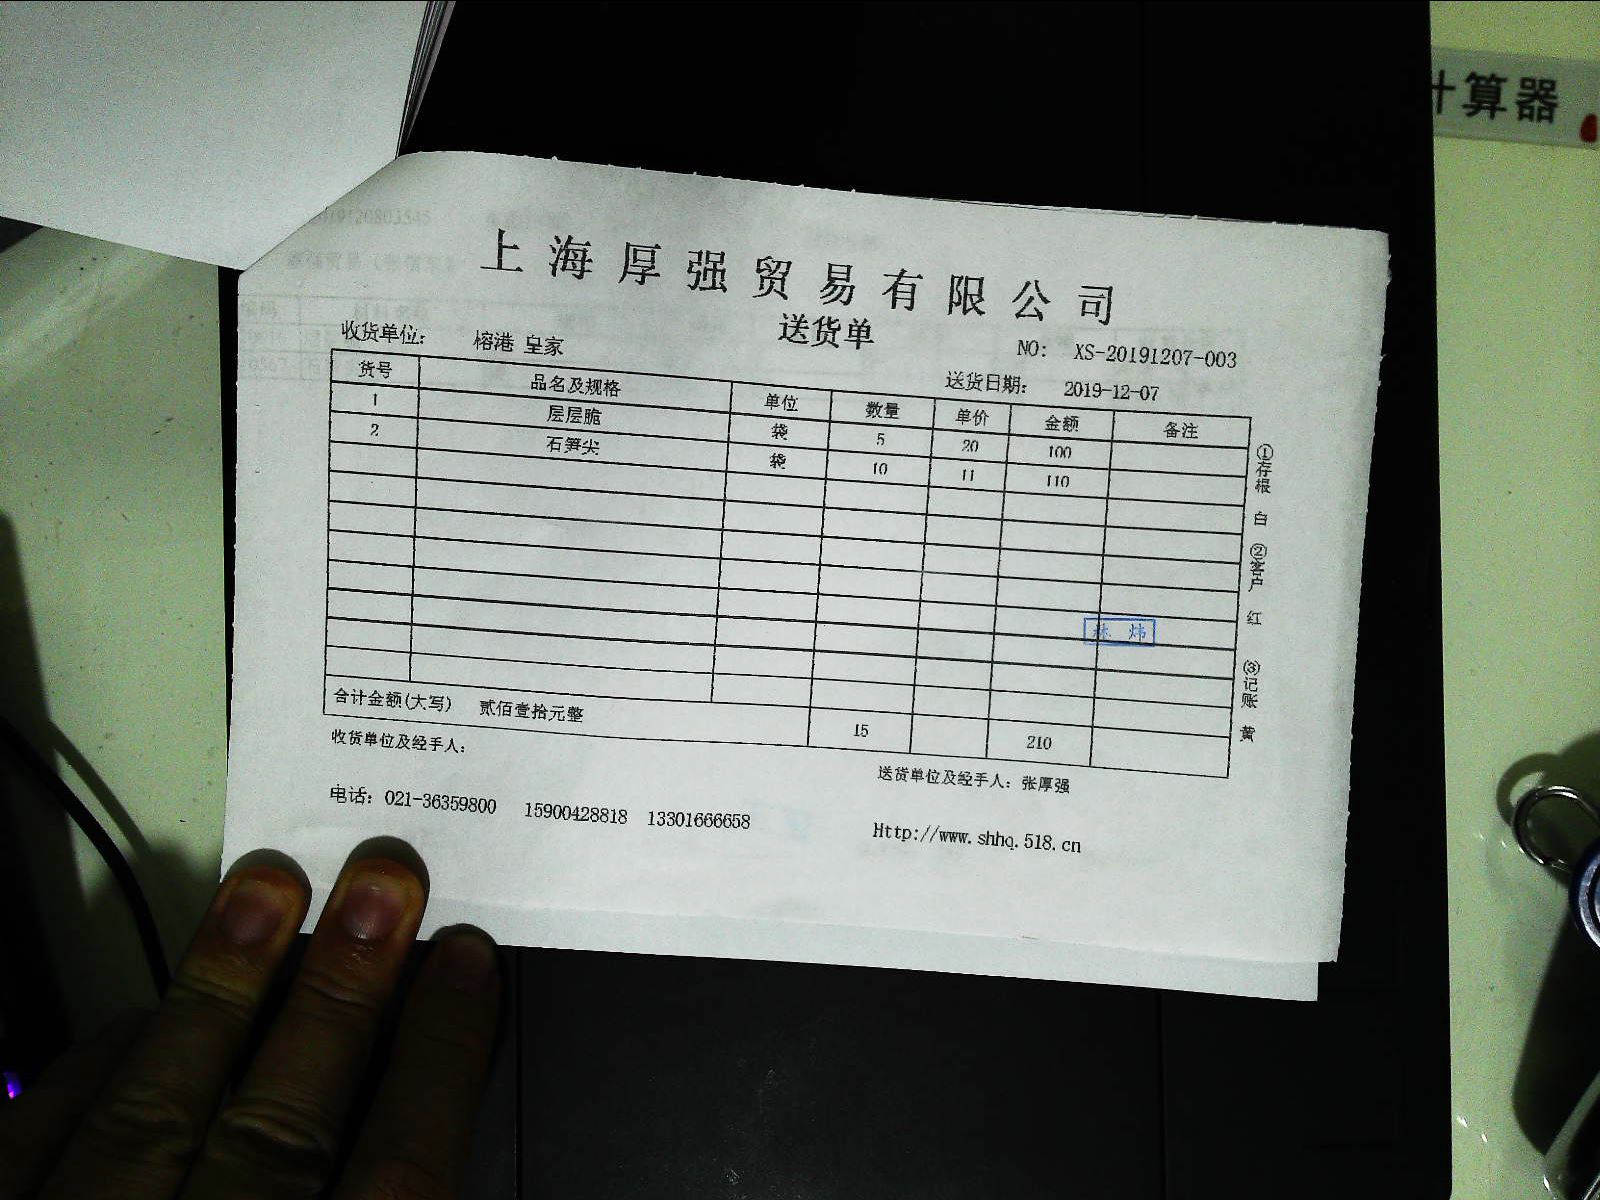 计算器
上海厚强贸易有限公司
送货单
收货单位： 榕港 皇家
NO: XS-20191207-003
送货日期： 2019-12-07
货号 品名及规格 单位 数量 单价 金额 备注
1 层层脆 袋 5 20 100
2 石笋尖 袋 10 11 110
合计金额(大写) 贰佰壹拾元整 15 210
收货单位及经手人：
送货单位及经手人：张厚强
电话：021-36359800 15900428818 13301666658
Http://www.shhq.518.cn
①存根 白 ②客户 红 ③记账 黄
炜